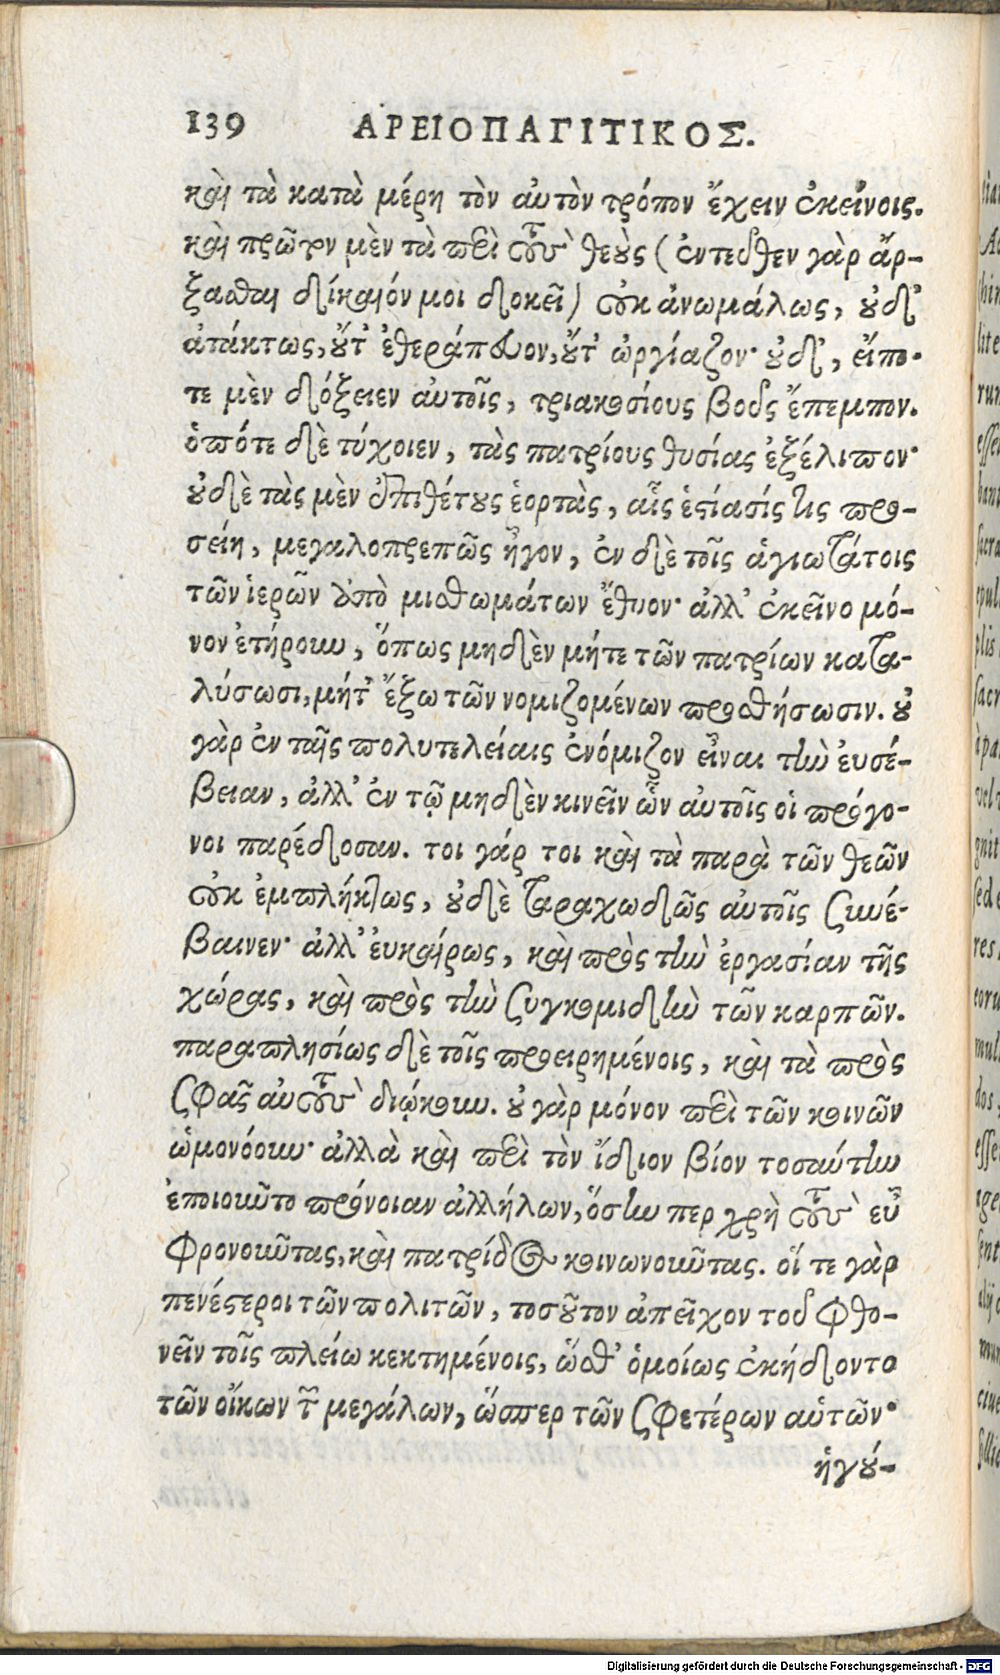 139 ΑΡΕΙΟΠΑΓΙΤΙΚΟΣ.
καὶ τὰ κατὰ μέρη τὸν αὐτὸν τρόπον ἔχειν ἐκείνοις.
καὶ πρῶτον μὲν τὰ περὶ τοὺς θεοὺς (ἐντεῦθεν γὰρ ἄρ-
ξασθαι δίκαιόν μοι δοκεῖ) οὐκ ἀνωμάλως, οὐδ'
ἀτάκτως, οὔτ' ἐθεράπευον, οὔτ' ὠργίαζον· οὐδ', εἴπο-
τε μὲν δόξειεν αὐτοῖς, τριακοσίους βοῦς ἔπεμπον.
ὁπότε δὲ τύχοιεν, τὰς πατρίους θυσίας ἐξέλιπον·
οὐδὲ τὰς μὲν ἐπιθέτους ἑορτὰς, αἷς ἑστίασίς τις προ-
σείη, μεγαλοπρεπῶς ἦγον, ἐν δὲ τοῖς ἁγιωτάτοις
τῶν ἱερῶν ἀπὸ μισθωμάτων ἔθυον· ἀλλ' ἐκεῖνο μό-
νον ἐτήρουν, ὅπως μηδὲν μήτε τῶν πατρίων κατα-
λύσωσι, μήτ' ἔξω τῶν νομιζομένων προσθήσωσιν. οὐ
γὰρ ἐν ταῖς πολυτελείαις ἐνόμιζον εἶναι τὴν εὐσέ-
βειαν, ἀλλ' ἐν τῷ μηδὲν κινεῖν ὧν αὐτοῖς οἱ πρόγο-
νοι παρέδοσαν. τοι γάρ τοι καὶ τὰ παρὰ τῶν θεῶν
οὐκ ἐμπλήκτως, οὐδὲ ταραχωδῶς αὐτοῖς συνέ-
βαινεν· ἀλλ' εὐκαίρως, καὶ πρὸς τὴν ἐργασίαν τῆς
χώρας, καὶ πρὸς τὴν συγκομιδὴν τῶν καρπῶν.
παραπλησίως δὲ τοῖς προειρημένοις, καὶ τὰ πρὸς
σφᾶς αὐτοὺς διῴκουν. οὐ γὰρ μόνον περὶ τῶν κοινῶν
ὡμονόουν· ἀλλὰ καὶ περὶ τὸν ἴδιον βίον τοσαύτην
ἐποιοῦντο πρόνοιαν ἀλλήλων, ὅσην περ χρὴ τοὺς εὖ
φρονοῦντας, καὶ πατρίδος κοινωνοῦντας. οἵ τε γὰρ
πενέστεροι τῶν πολιτῶν, τοσοῦτον ἀπεῖχον τοῦ φθο-
νεῖν τοῖς πλείω κεκτημένοις, ὥσθ' ὁμοίως ἐκήδοντο
τῶν οἴκων τῶν μεγάλων, ὥσπερ τῶν σφετέρων αὑτῶν·
ἡγού-
Digitalisierung gefördert durch die Deutsche Forschungsgemeinschaft - DFG